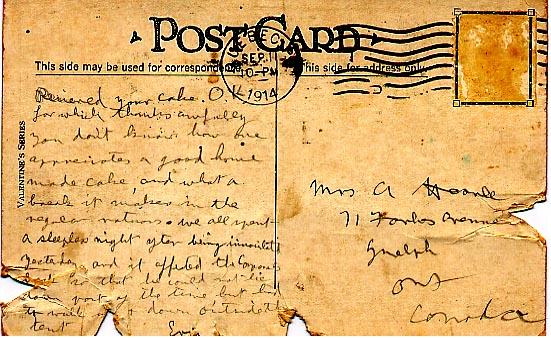 POST CARD
This side may be used for correspondence
This side for address only.
SEP. 11
10-PM
1914
VALENTINE'S SERIES
Received your cake. O.K.
for which thanks awfully
you don't know how one
appreciates a good home
made cake, and what a
break it makes in the
regular rations. We all spent
a sleepless night after being inoculated
yesterday and it affected the Corporals
so that he could not lie
down part of the time but had
to walk up & down outside the
tent
Mrs A
71 Forbes Avenue
Guelph
Ont
Canada